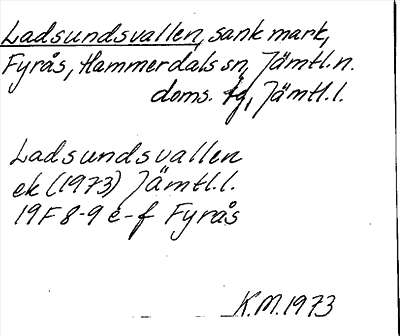 Ladsundsvallen, sank mark,
Fyrås, Hammerdals sn, Jämtl. n.
doms. tg, Jämtl. l.
Ladsundsvallen
ek (1973) Jämtl. l.
19F 8-9 e-f Fyrås
K.M. 1973